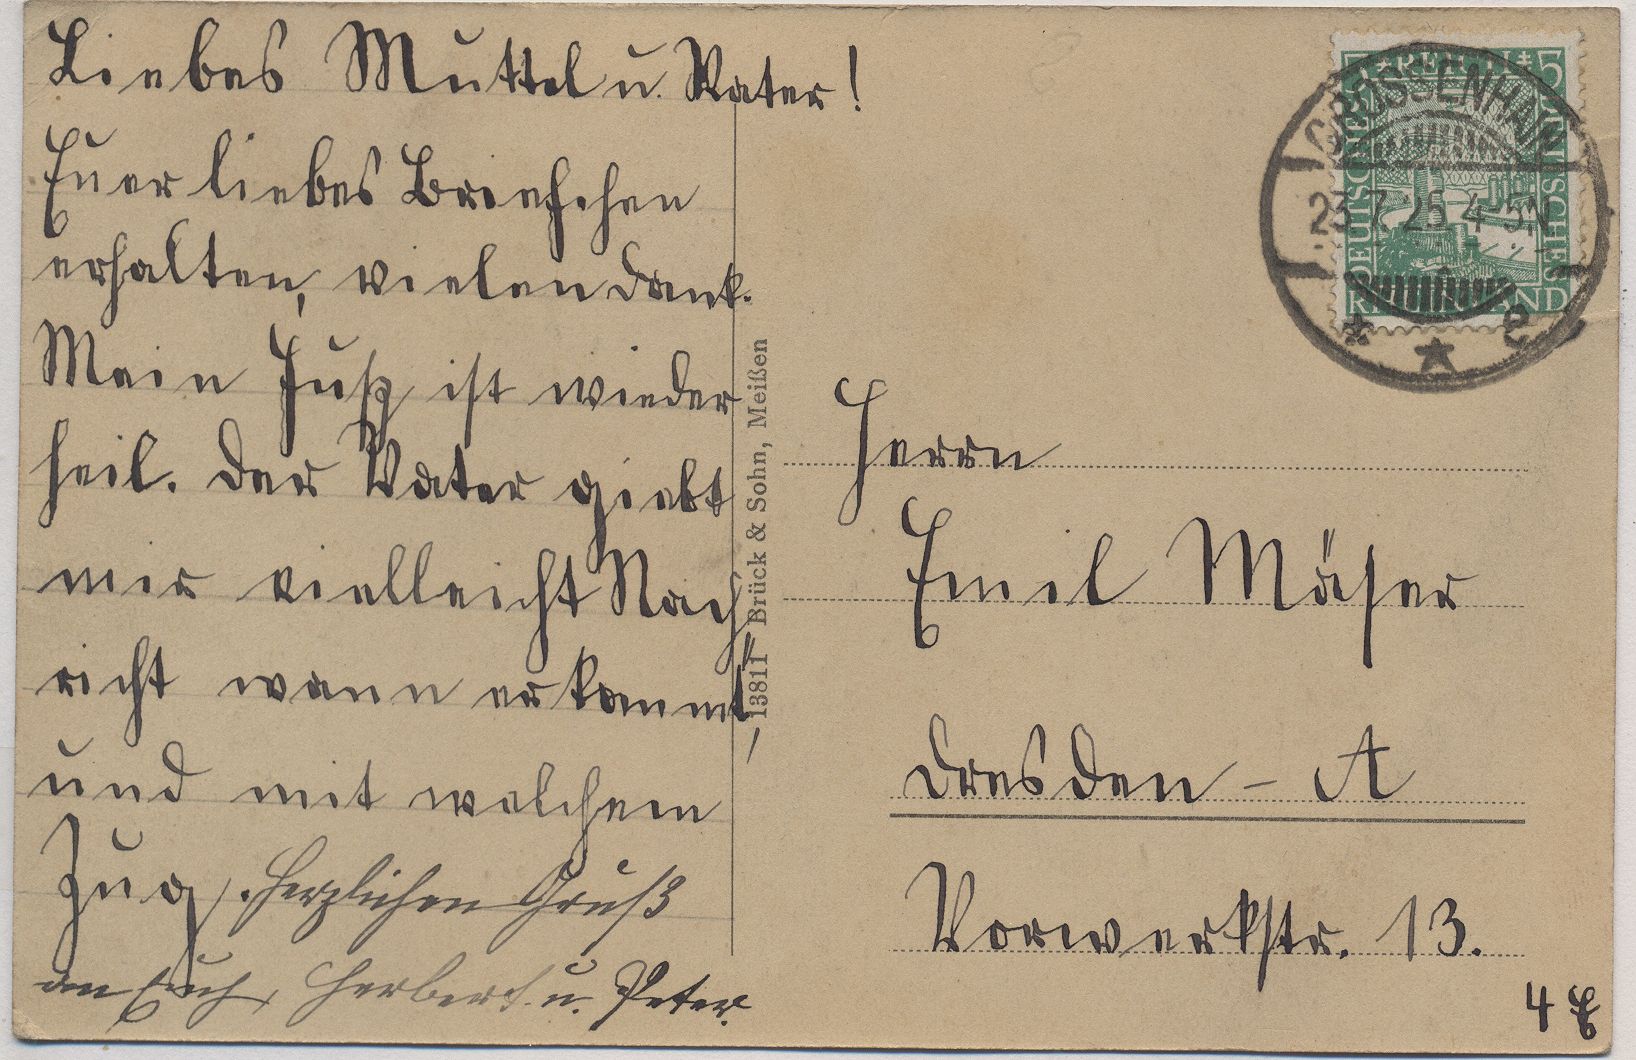 Liebes Muttel u. Vater!
Euer liebes Briefchen
erhalten, vielen Dank.
Mein Fuß ist wieder
heil. Der Vater giebt
mir vielleicht Nach
richt wann er kommt,
und mit welchem
Zug. Herzlichen Gruß
an Euch, Herbert u. Peter.
13811 Brück & Sohn, Meißen
DEUTSCHES
5
RHEINLAND
GROSSENHAIN
23.7.25. 4-5N
* e
Herrn
Emil Mäser
Dresden - A
Vorwerkstr. 13.
4 E